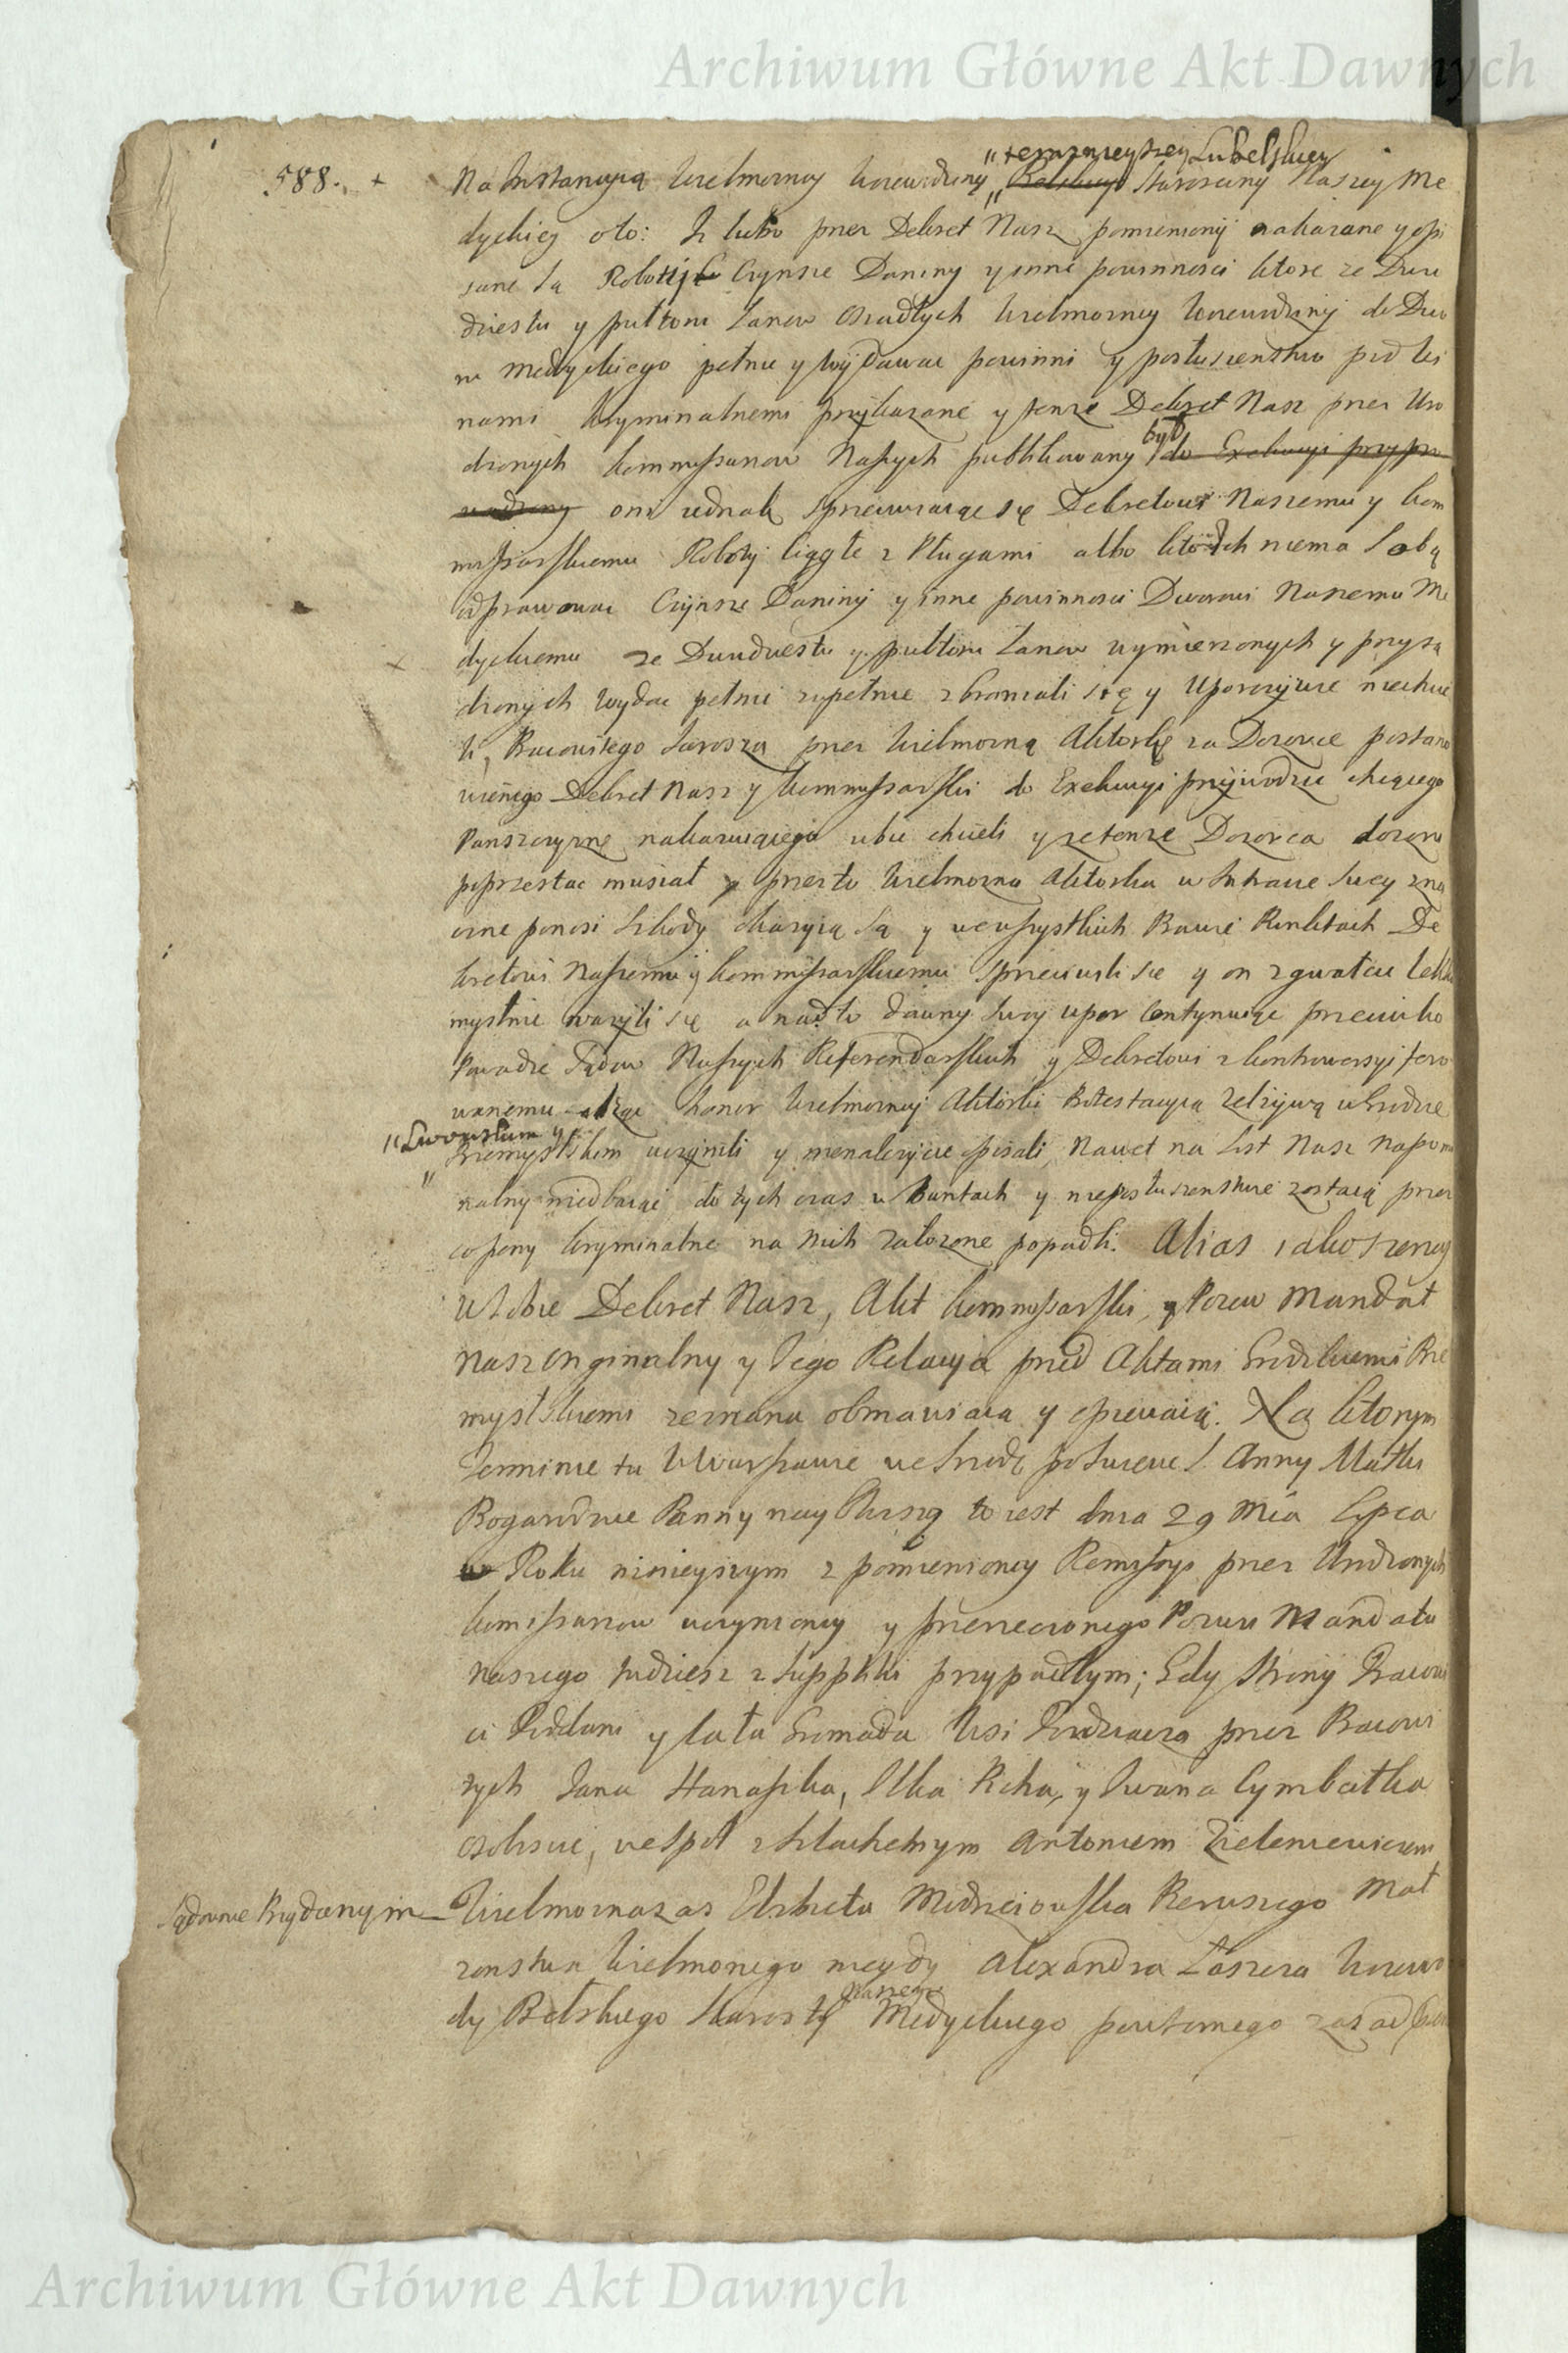 Archiwum Główne Akt Dawnych
588. +
"teraznieyszey Lubelskiey
Na Instancyią Wielmozney Woiewodziny Belskiey Starosciny Naszey Me
dyckiey oto: Iz lubo przez Dekret Nasz pomieniony nakazane y opi
sane są Roboty Czynsze Daniny y inne powinnosci ktore ze Dwu
dziestu y pułtora Łanow Osiadłych Wielmozney Woiewodziny do Dwo
ru Medyckiego pełnic y wydawac powinni y posłuszenstwo pod wi
nami kryminalnemi przykazane y tenze Dekret Nasz przez Uro
dzonych kommissarzow Naszych publikowany był do Exekucyi przypro
wadzony oni iednak sprzeciwiaiąc się Dekretowi Naszemu y kom
missarskiemu Roboty ciągłe z Pługami albo ktorych niema Sobą
odprawowac Czynsze Daniny y inne powinnosci Dworowi Naszemu Me
dyckiemu ze Dwudziestu y pułtora Łanow wymierzonych y przysą
dzonych wydac pełnic zupełnie zbraniali się y Uporczywie niechcie
li, Pracowitego Jarosza przez Wielmozną Aktorkę za Dozorce postano
wionego Dekret Nasz y kommissarski do Exekucyi przywodzic chcącego
Panszczyznę nakazuiącego ubic chcieli y ze tenze Dozorca dozoru
poprzestac musiał y przez to Wielmozna Aktorka w Intracie swey zna
czne ponosi Szkody okazyią są y we wszystkich Prawie Punktach De
kretowi Naszemu y kommissarskiemu sprzeciwili się y on zgwałcic lekko
myslnie wazyli się a nadto dawny swoy upor kontynuiąc przeciwko
Powadze Sądow Naszych Referendarskich y Dekretowi z kontrowersyi fero
wanemu honor Wielmozney Aktorki Protestacyią zelzywą w Grodzie
"Lwowskim y
Przemyslskim uczynili y nienalezycie opisali, Nawet na List Nasz napomi
nalny niedbaiąc do tych czas w buntach y nieposłuszenstwie zostaią przez
co peny kryminalne na nich załozone popadli. Alias iako szerzey
w Sobie Dekret Nasz, Akt kommissarski, y Pozew Mandat
nasz Originalny y Jego Relacyia przed Aktami Grodzkiemi Prze
mysłskiemi zeznana obmawiaia y opiewaią. Na ktorym
Terminie tu w Warszawie we Srodę po Swięcie S. Anny Matki
Bogarodzice Panny nay Bliszą to iest dnia 29 Mca Lipca
w Roku ninieyszym z pomienioney Remissyi przez Urodzonych
kommissarzow uczynioney y przerzeczonego Pozwu Mandatu
naszego tudziesz z suppliki przypadłym; Gdy Strony Pracowi
ci Poddani y cała Gromada Wsi Torchacza przez Pracowi
tych Jana Hanasika, Ilka Richa, y Iwana Cymbałka
osobscie, wespoł z Szlachetnym Antonim Zieleniewiczem
Sądownie Przydanym Wielmozna zas Elzbieta Modrzeiowska Pierwszego Mał
zenstwa Wielmoznego niegdy Alexandra Łaszcza Woiewo
naszego
dy Bełskiego Starosty Medyckiego powtornego zas
Archiwum Główne Akt Dawnych